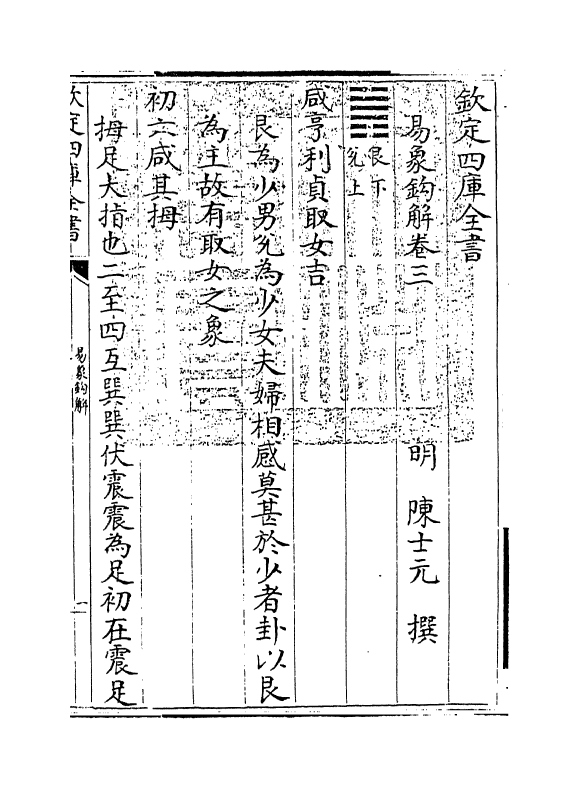 欽定四庫全書
易象鈎解卷三
明 陳士元 撰
䷞艮下
兊上
咸亨利貞取女吉
艮為少男兊為少女夫婦相感莫甚於少者卦以艮
為主故有取女之象
初六咸其拇
拇足大指也二至四互巽巽伏震震為足初在震足
欽定四庫全書
易象鈎解
一